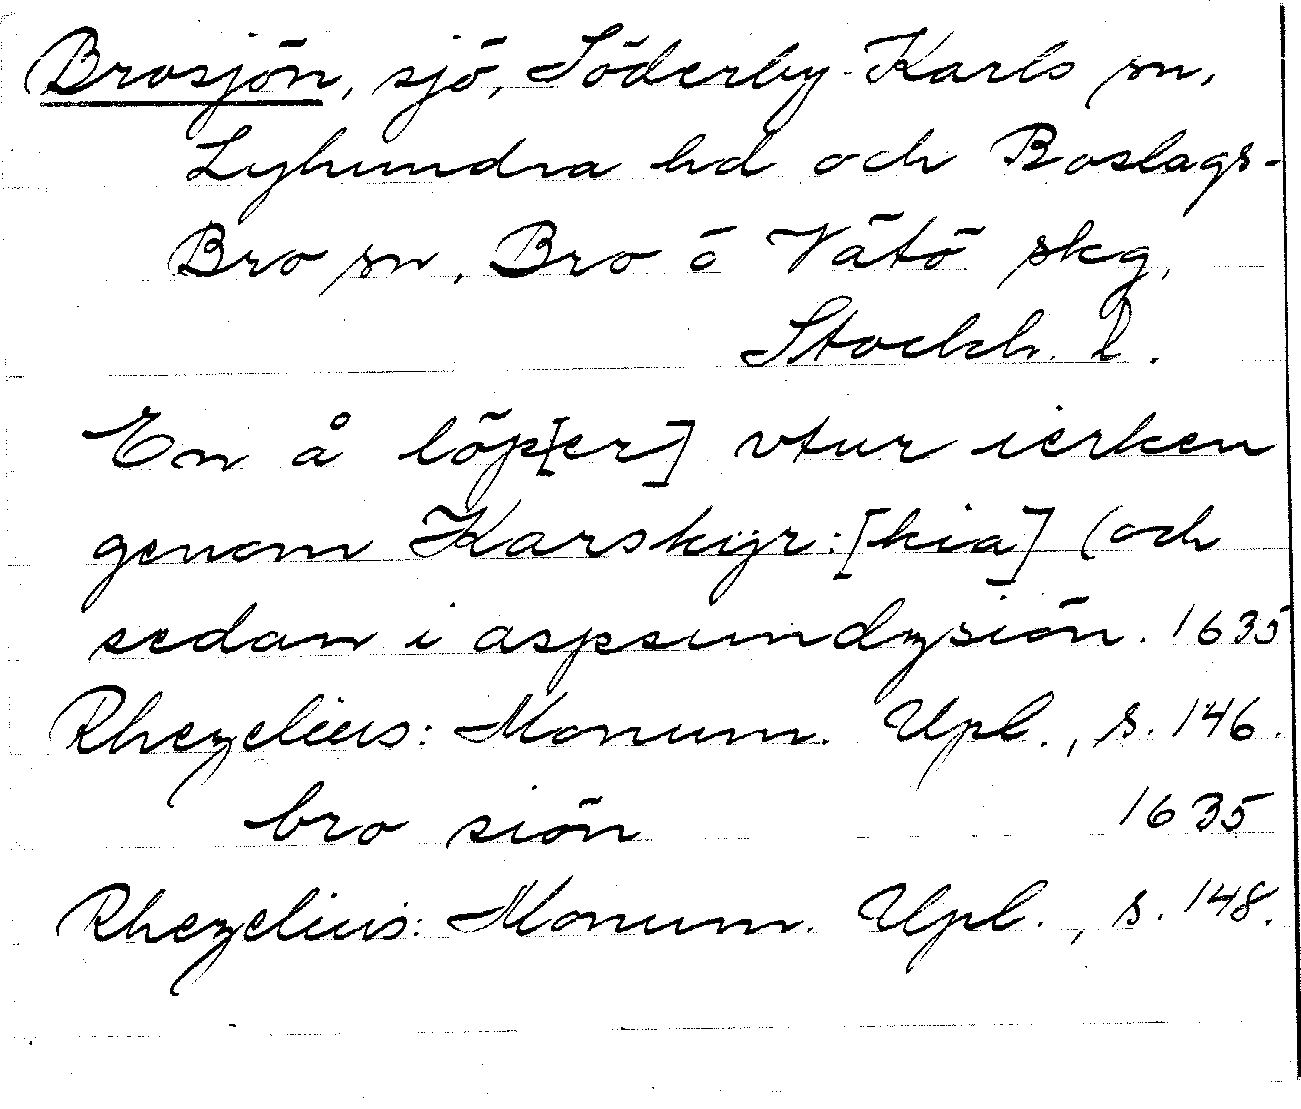 Brosjön, sjö, Söderby-Karls sn,
Lyhundra hd och Roslags-
Bro sn, Bro o Vätö skg,
Stockh. l.
En å löp[er] vtur ierken
genom Karskyr:[kia] (och
sedan i aspsundzsiön. 1635
Rhezelius: Monum. Upl., s. 146.
bro siön 1635
Rhezelius: Monum. Upl., s. 148.